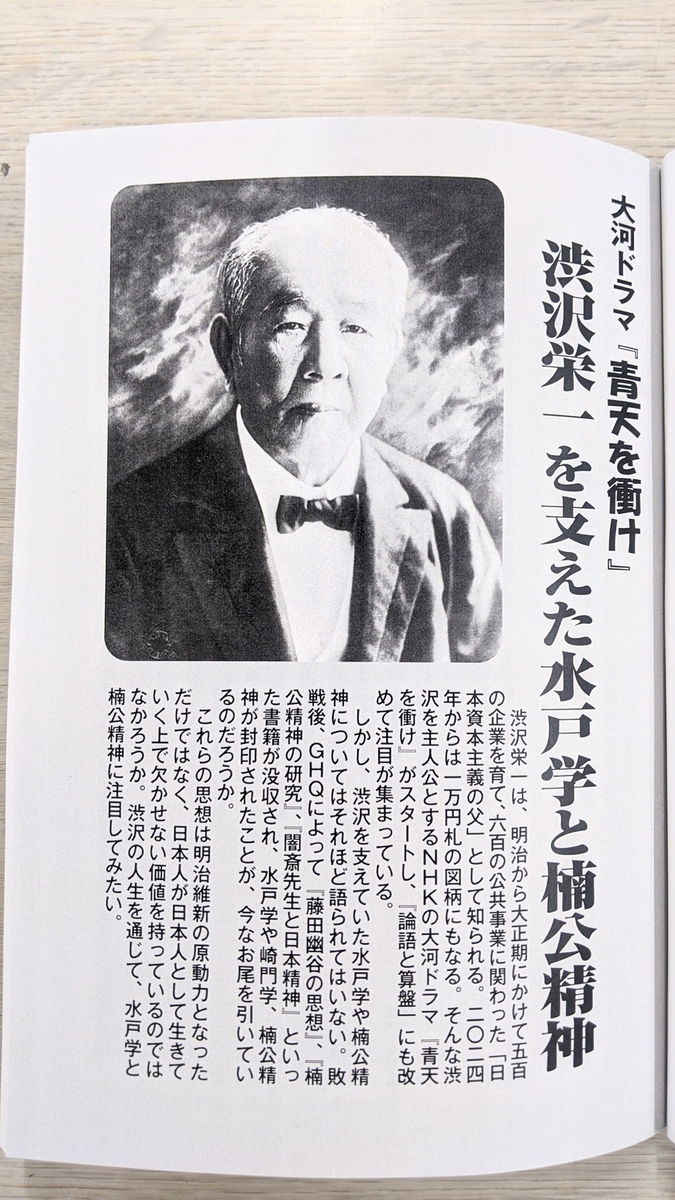 大河ドラマ『青天を衝け』
渋沢栄一を支えた水戸学と楠公精神
渋沢栄一は、明治から大正期にかけて五百
の企業を育て、六百の公共事業に関わった「日
本資本主義の父」として知られる。二〇二四
年からは一万円札の図柄にもなる。そんな渋
沢を主人公とするNHKの大河ドラマ『青天
を衝け』がスタートし、『論語と算盤』にも改
めて注目が集まっている。
しかし、渋沢を支えていた水戸学や楠公精
神についてはそれほど語られてはいない。敗
戦後、GHQによって『藤田幽谷の思想』、『楠
公精神の研究』、『闇斎先生と日本精神』といっ
た書籍が没収され、水戸学や崎門学、楠公精
神が封印されたことが、今なお尾を引いてい
るのだろうか。
これらの思想は明治維新の原動力となった
だけではなく、日本人が日本人として生きて
いく上で欠かせない価値を持っているのでは
なかろうか。渋沢の人生を通じて、水戸学と
楠公精神に注目してみたい。